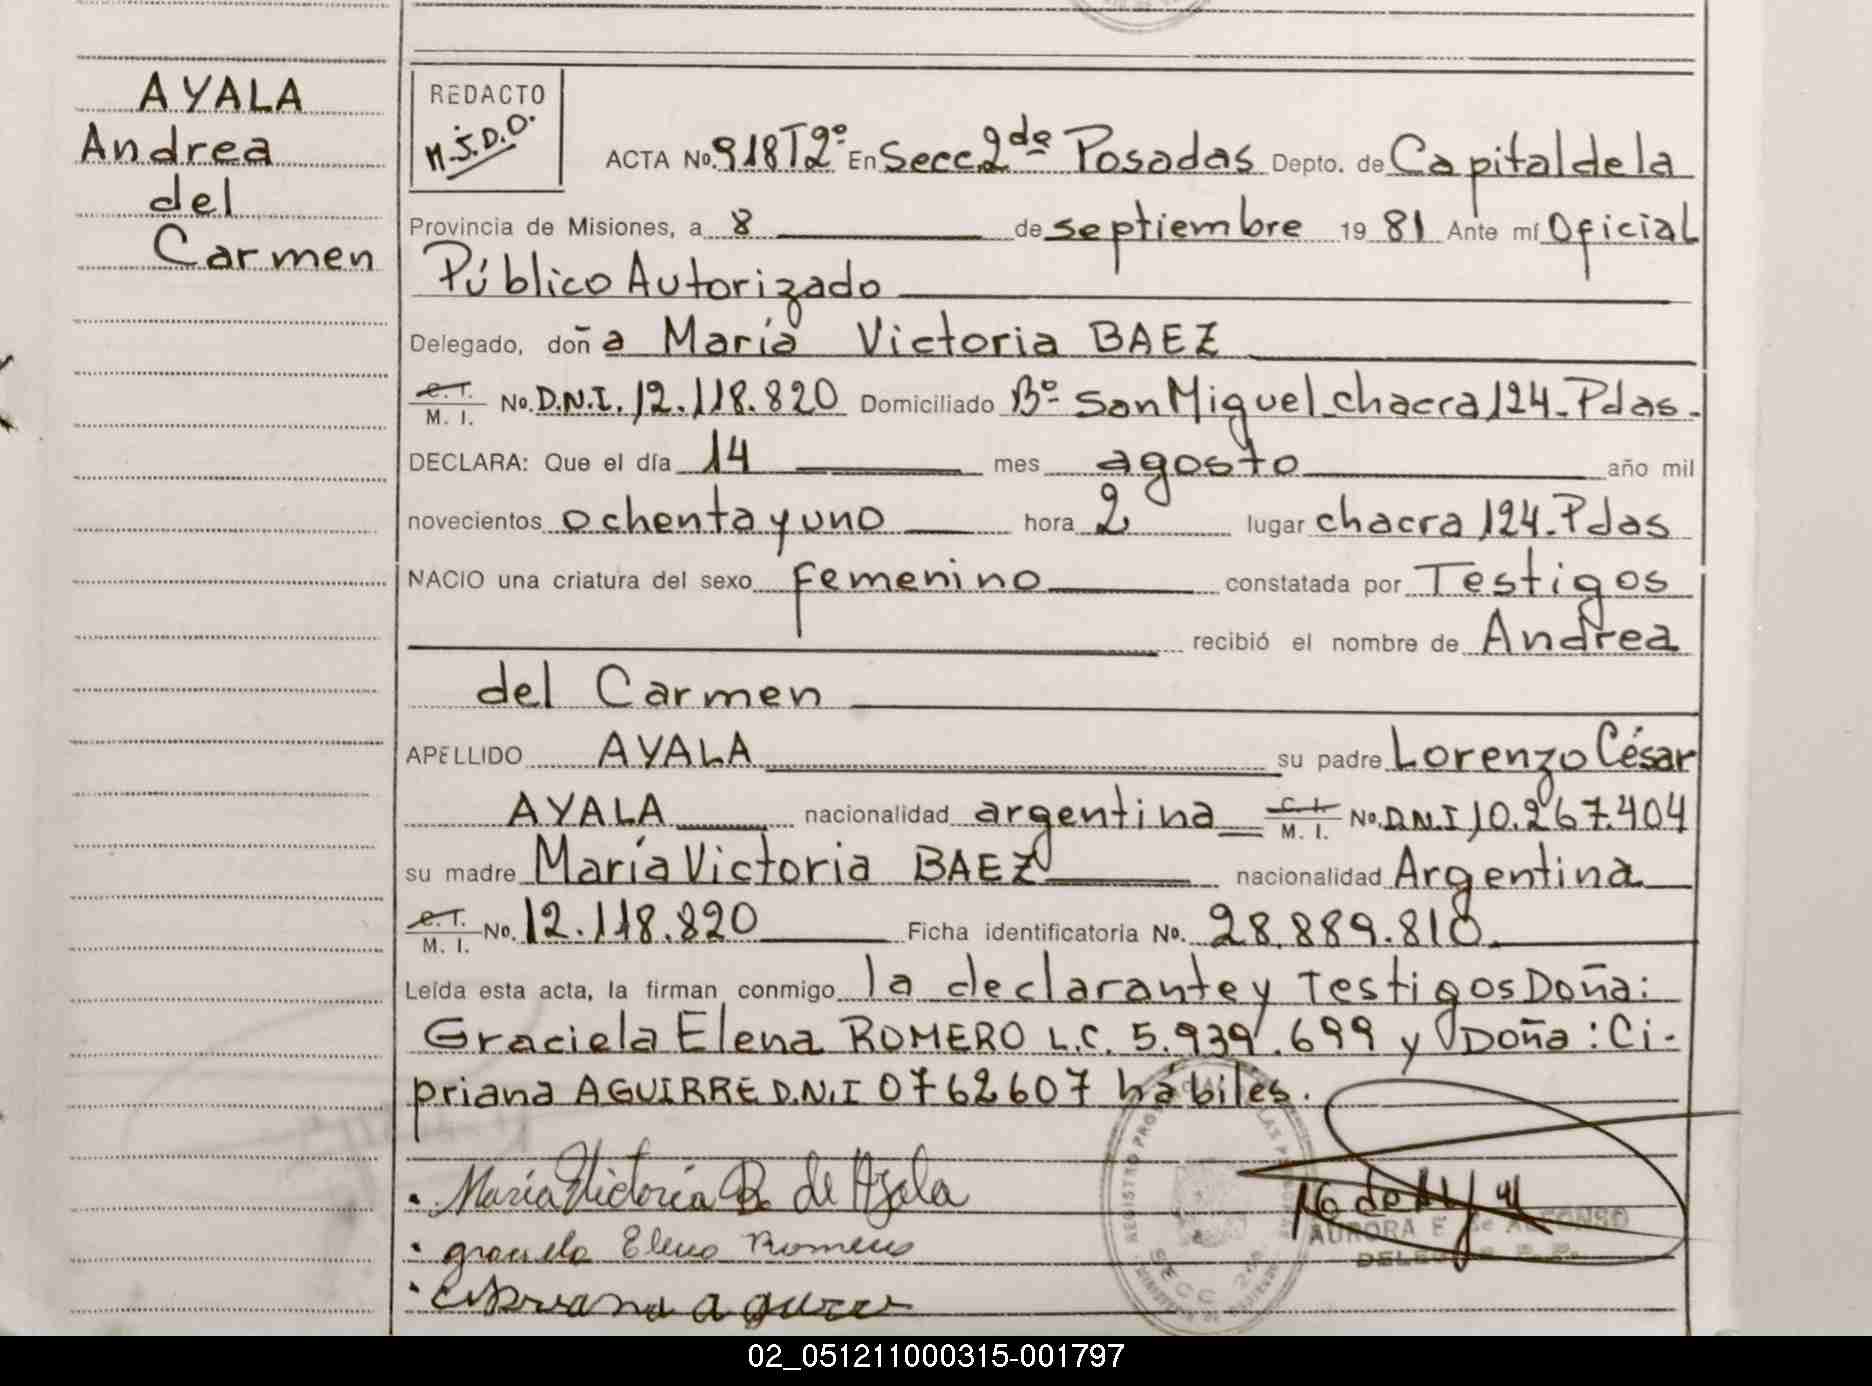 AYALA
Andrea
del
Carmen
REDACTO
M.J.D.O.
ACTA No. 918 T2º En Secc 2da Posadas Depto. de Capital de la
Provincia de Misiones, a 8 de septiembre 19 81 Ante mí Oficial
Público Autorizado
Delegado, doña María Victoria BAEZ
C. I. M. I. No. D.N.I. 12.118.820 Domiciliado Bº San Miguel chacra 124. Pdas.
DECLARA: Que el día 14 mes agosto año mil
novecientos ochenta y uno hora 2 lugar chacra 124. Pdas
NACIO una criatura del sexo femenino constatada por Testigos
recibió el nombre de Andrea
del Carmen
APELLIDO AYALA su padre Lorenzo César
AYALA nacionalidad argentina C. I. M. I. No. D.N.I 10.267.404
su madre María Victoria BAEZ nacionalidad Argentina
C. I. M. I. No. 12.118.820 Ficha identificatoria No. 28.889.810
Leída esta acta, la firman conmigo la declarante y Testigos Doña:
Graciela Elena ROMERO L.C. 5.939.699 y Doña: Ci-
priana AGUIRRE D.N.I 0762607 hábiles.
María Victoria B. de Ayala
Graciela Elena Romero
Cipriana Aguirre
AURORA E. de ALFONSO
SECC 2da
02_051211000315-001797